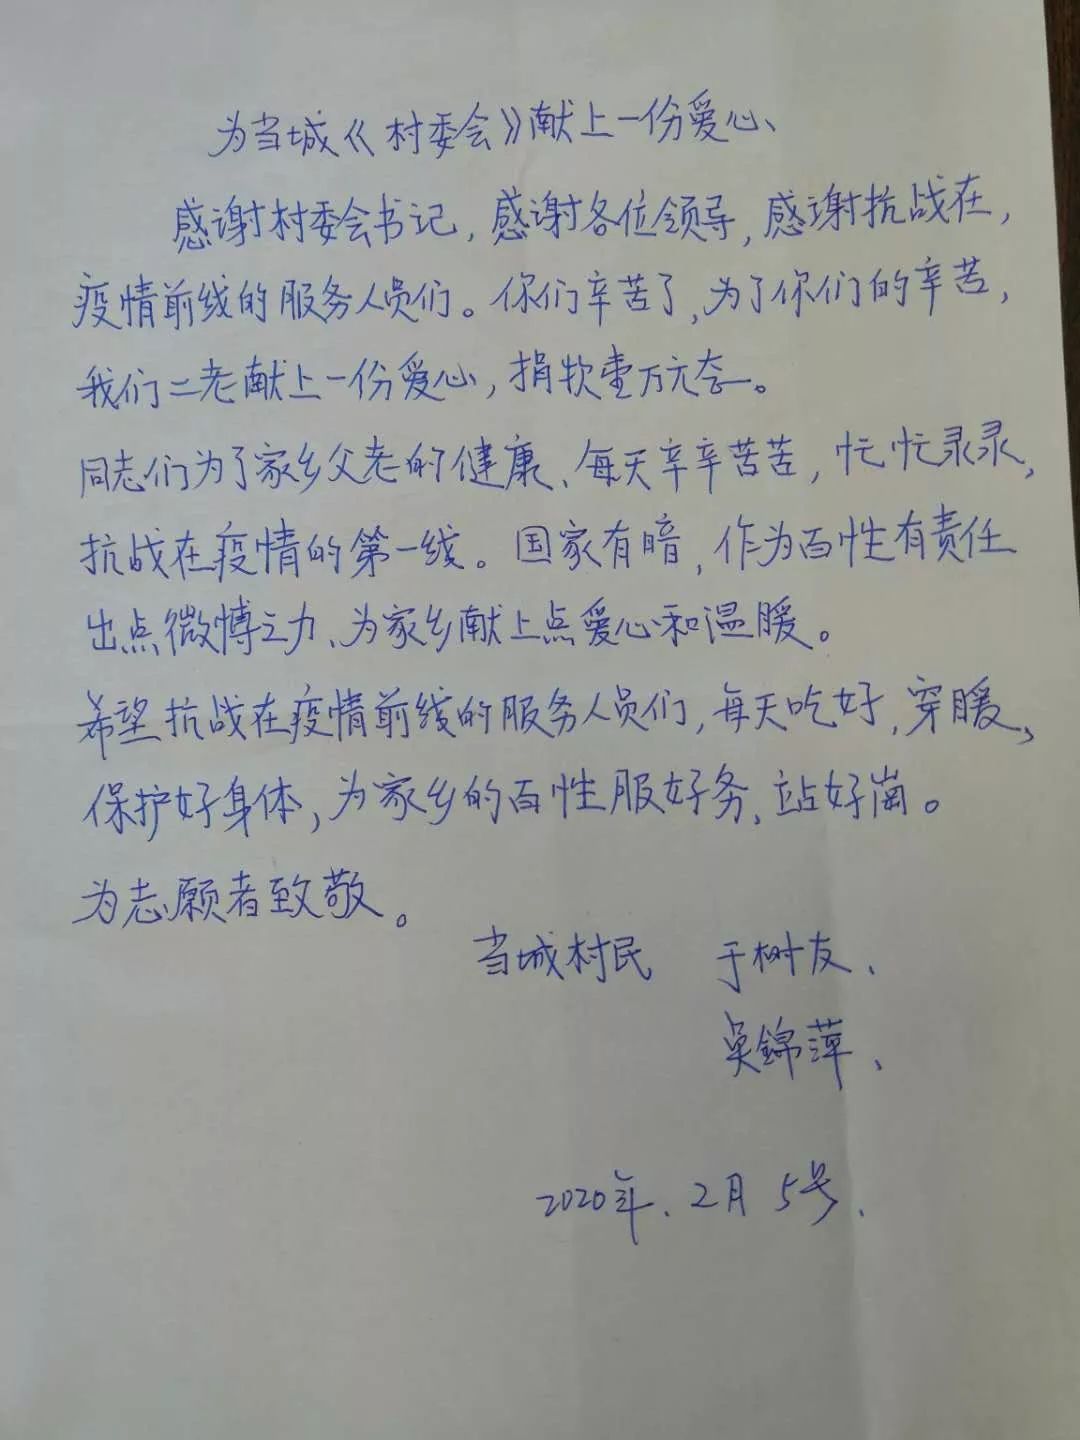 为当城《村委会》献上一份爱心、
感谢村委会书记，感谢各位领导，感谢抗战在，
疫情前线的服务人员们。你们辛苦了，为了你们的辛苦，
我们二老献上一份爱心，捐款壹万元态。
同志们为了家乡父老的健康、每天辛辛苦苦，忙忙录录，
抗战在疫情的第一线。国家有暗，作为百性有责任
出点微博之力、为家乡献上点爱心和温暖。
希望抗战在疫情前线的服务人员们，每天吃好，穿暖、
保护好身体，为家乡的百性服好务、站好岗。
为志愿者致敬。
当城村民 于树友、
吴錦萍、
2020年、2月5号、